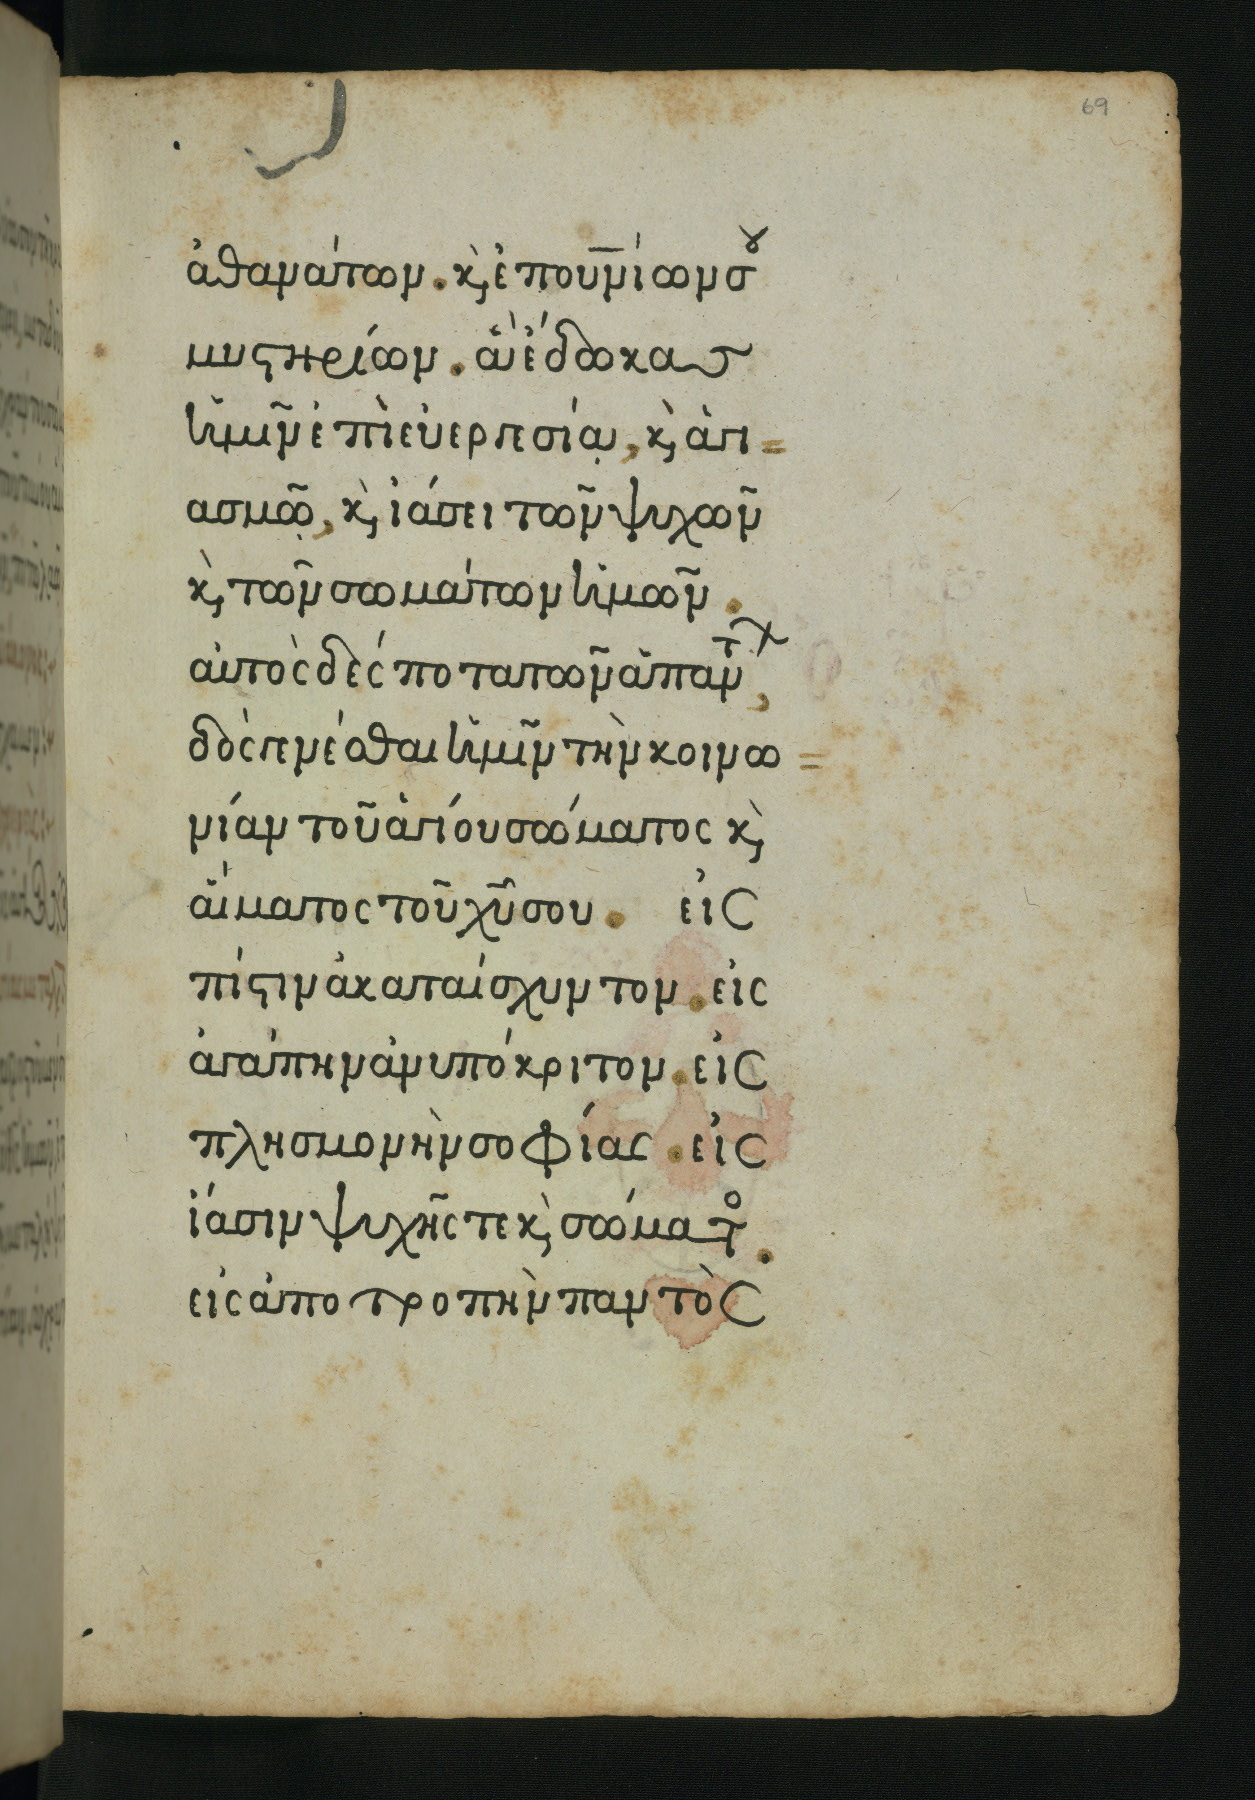 69
ἀθανάτων. κ ̀ ἐπουνίων σου
μυστηρίων. ἃ ἔδωκας
ἡμῖν ἐπὶ εὐεργεσίᾳ, κ ̀ ἁγι=
ασμῷ, κ ̀ ἰάσει τῶν ψυχῶν
κ ̀ τῶν σωμάτων ἡμῶν.
αὐτὸς δέσποτα τῶν ἁπάντ,
δὸς γενέσθαι ἡμῖν τὴν κοινω=
νίαν τοῦ ἁγίου σώματος κ ̀
αἵματος τοῦ χυ σου. εἰς
πίστιν ἀκαταίσχυντον. εἰς
ἀγάπην ἀνυπόκριτον. εἰς
πλησμονὴν σοφίας. εἰς
ἴασιν ψυχῆς τε κ ̀ σώματο.
εἰς ἀποτροπὴν παντὸς